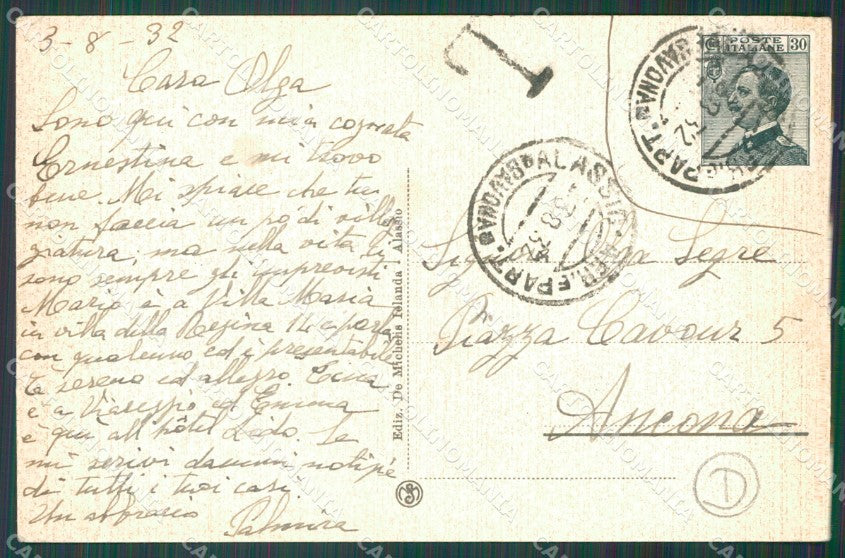 3-8-32
Cara Olga
Sono qui con mia cognata
Ernestina e mi trovo
bene. Mi spiace che tu
non faccia un po' di ville
giatura, ma nella vita ci
sono sempre gli imprevisti
Mario è a Villa Maria
in villa della Regina 14 parla
con qualcuno ed è presentabile
È sereno ed allegro.
è a Viareggio ed Emma
è qui all'hôtel Lido. Se
mi scrivi dammi notizie
di tutti i tuoi cari.
Un abbraccio
Palmira
Ediz. De Michelis Iolanda - Alassio
T
POSTE ITALIANE 30
ALASSIO ARR. E PART. (SAVONA)
3.8.32
Sig Olga Segre
Piazza Cavour 5
Ancona
D
CARTOLINOMANIA